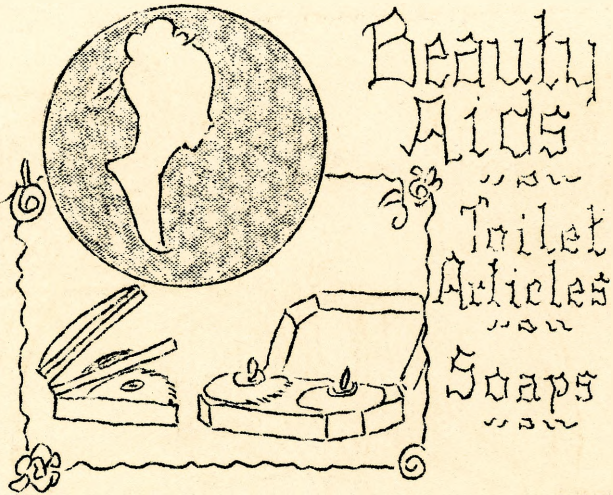 Beauty
Aids
Toilet
Articles
Soaps